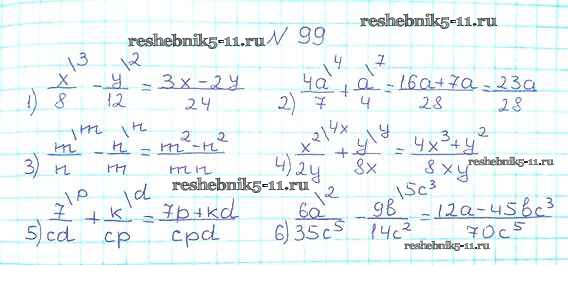 reshebnik5-11.ru
reshebnik5-11.ru N 99
1) x\3/8 - y\2/12 = 3x-2y/24 2) 4a\4/7 + a\7/4 = 16a+7a/28 = 23a/28
3) m\m/n - n\n/m = m²-n²/mn 4) x²\4x/2y + y\y/8x = 4x³+y²/8xy
reshebnik5-11.ru
reshebnik5-11.ru
5) 7\p/cd + k\d/cp = 7p+kd/cpd 6) 6a\2/35c⁵ - 9b\5c³/14c² = 12a-45bc³/70c⁵
reshebnik5-11.ru